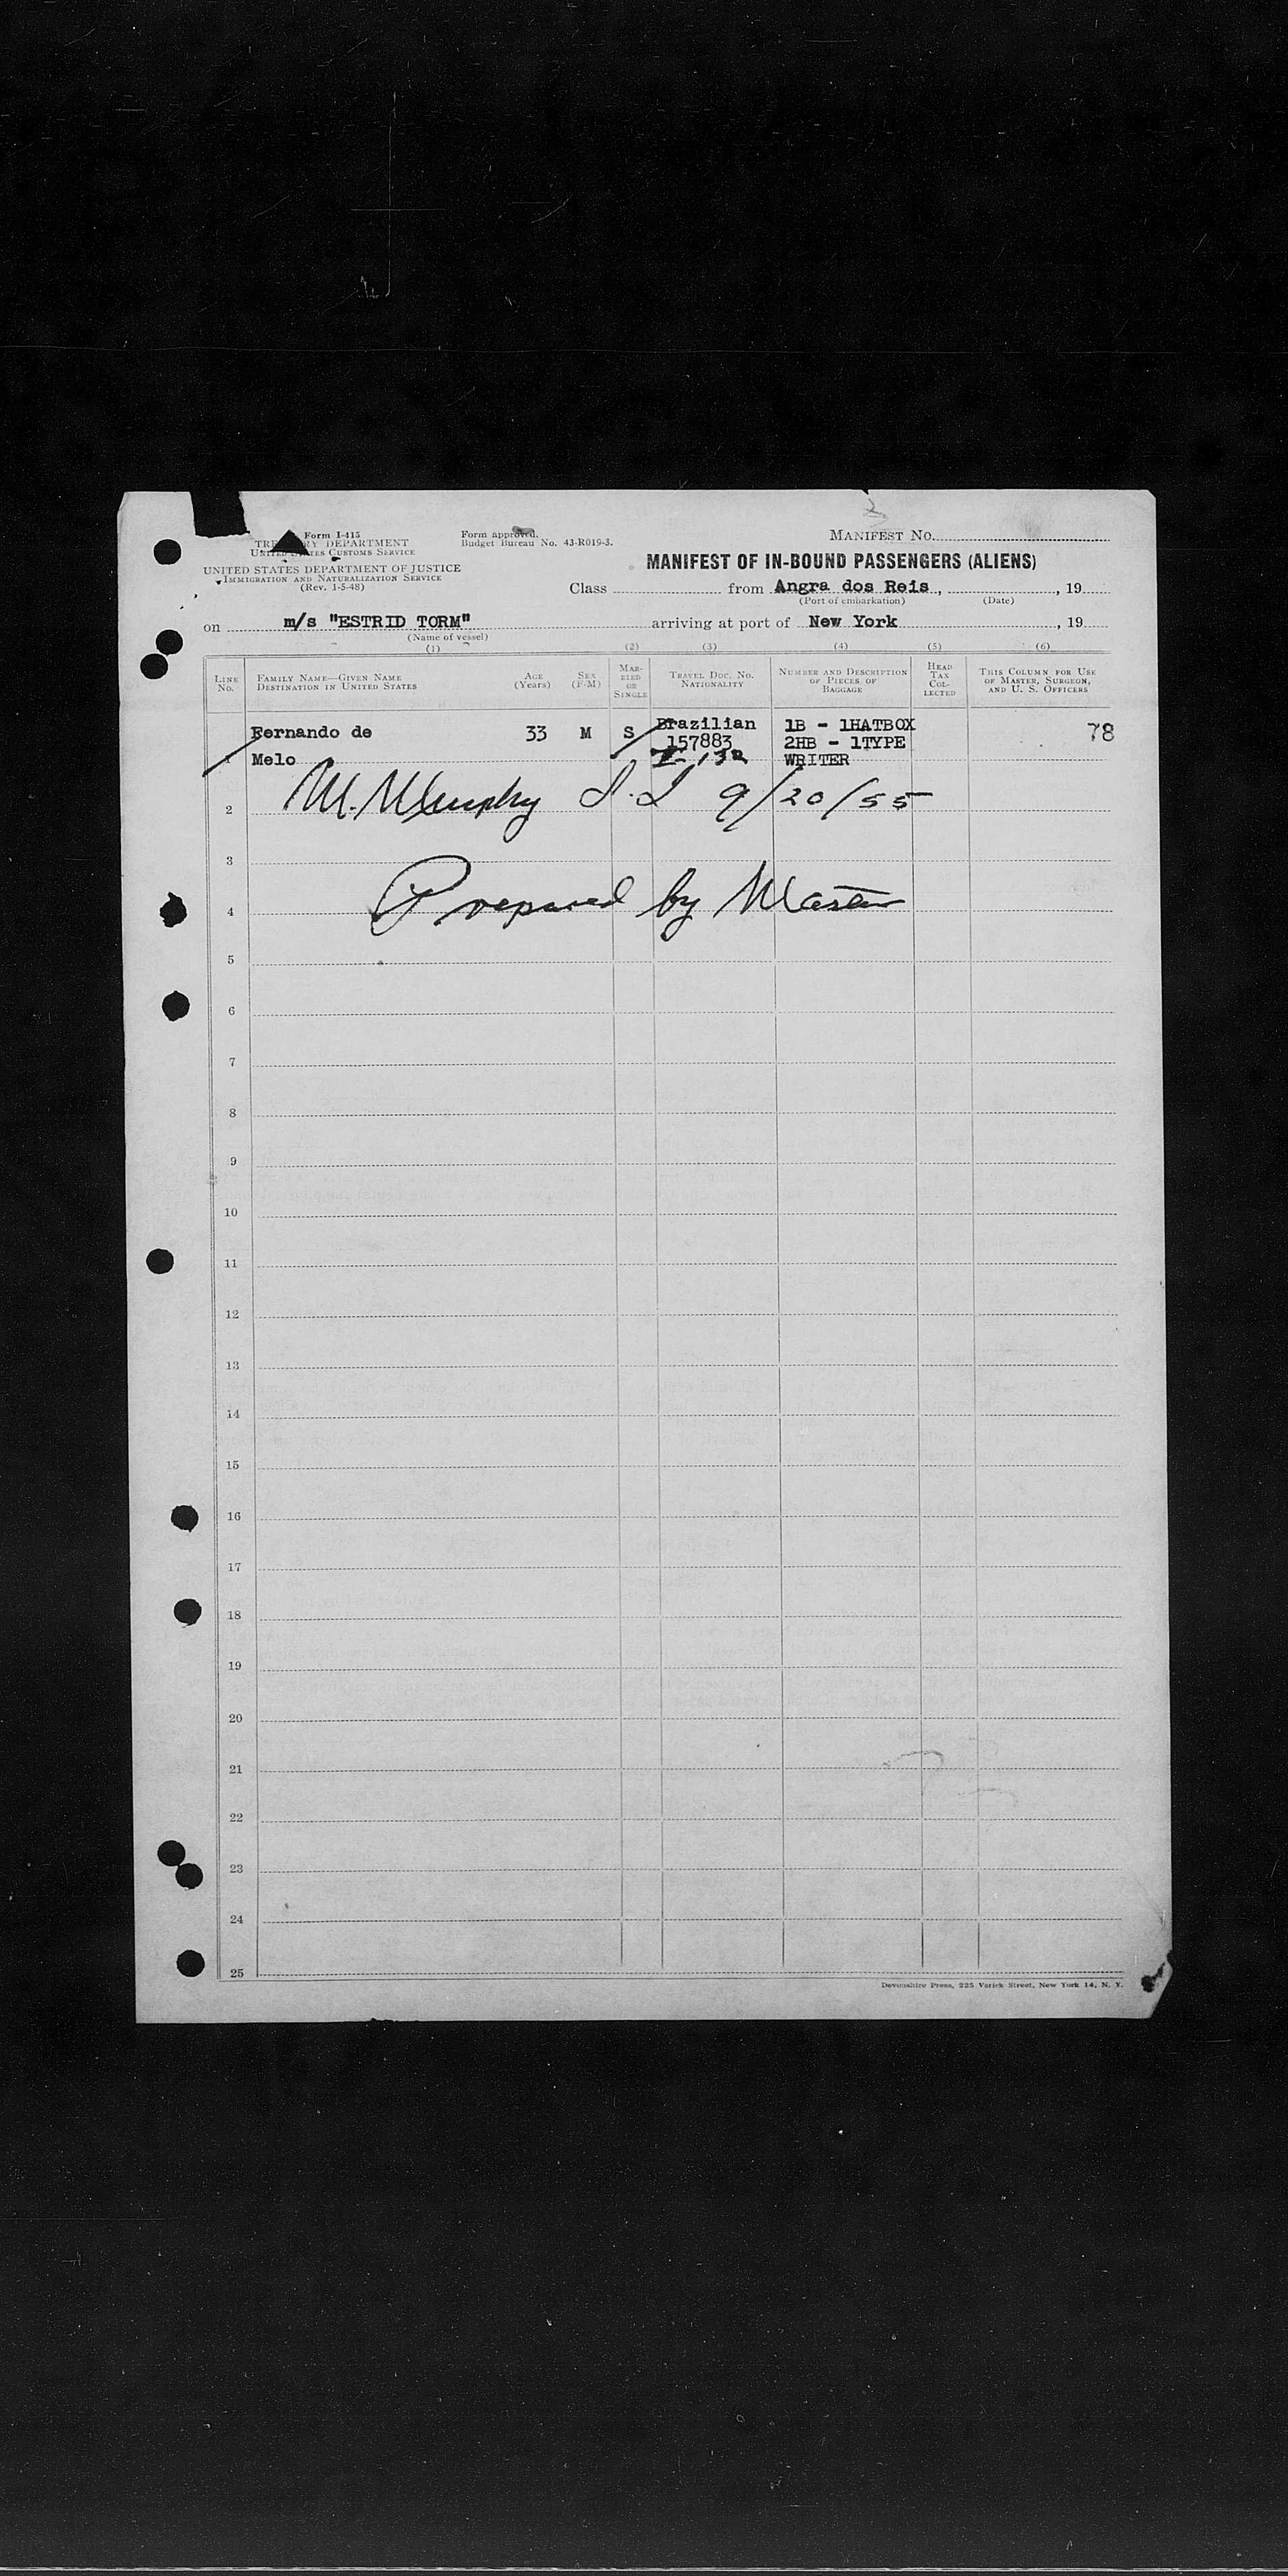 Form I-415
TREASURY DEPARTMENT
UNITED STATES CUSTOMS SERVICE
UNITED STATES DEPARTMENT OF JUSTICE
IMMIGRATION AND NATURALIZATION SERVICE
(Rev. 1-5-48)
Form approved.
Budget Bureau No. 43-R019-3.
MANIFEST NO.
MANIFEST OF IN-BOUND PASSENGERS (ALIENS)
Class from Angra dos Reis, , 19
(Port of embarkation) (Date)
on m/s "ESTRID TORM" arriving at port of New York , 19
(Name of vessel)
(1) (2) (3) (4) (5) (6)
LINE No. FAMILY NAME—GIVEN NAME DESTINATION IN UNITED STATES AGE (Years) SEX (F-M) MARRIED OR SINGLE TRAVEL DOC. NO. NATIONALITY NUMBER AND DESCRIPTION OF PIECES OF BAGGAGE HEAD TAX COLLECTED THIS COLUMN FOR USE OF MASTER, SURGEON, AND U. S. OFFICERS
Fernando de 33 M S Brazilian 1B - 1HATBOX 78
157883 2HB - 1TYPE
1 Melo WRITER
M. Murphy I.I 9/20/55
2
3
Prepared by Master
4
5
6
7
8
9
10
11
12
13
14
15
16
17
18
19
20
21
22
23
24
25
Devonshire Press, 225 Varick Street, New York 14, N. Y.